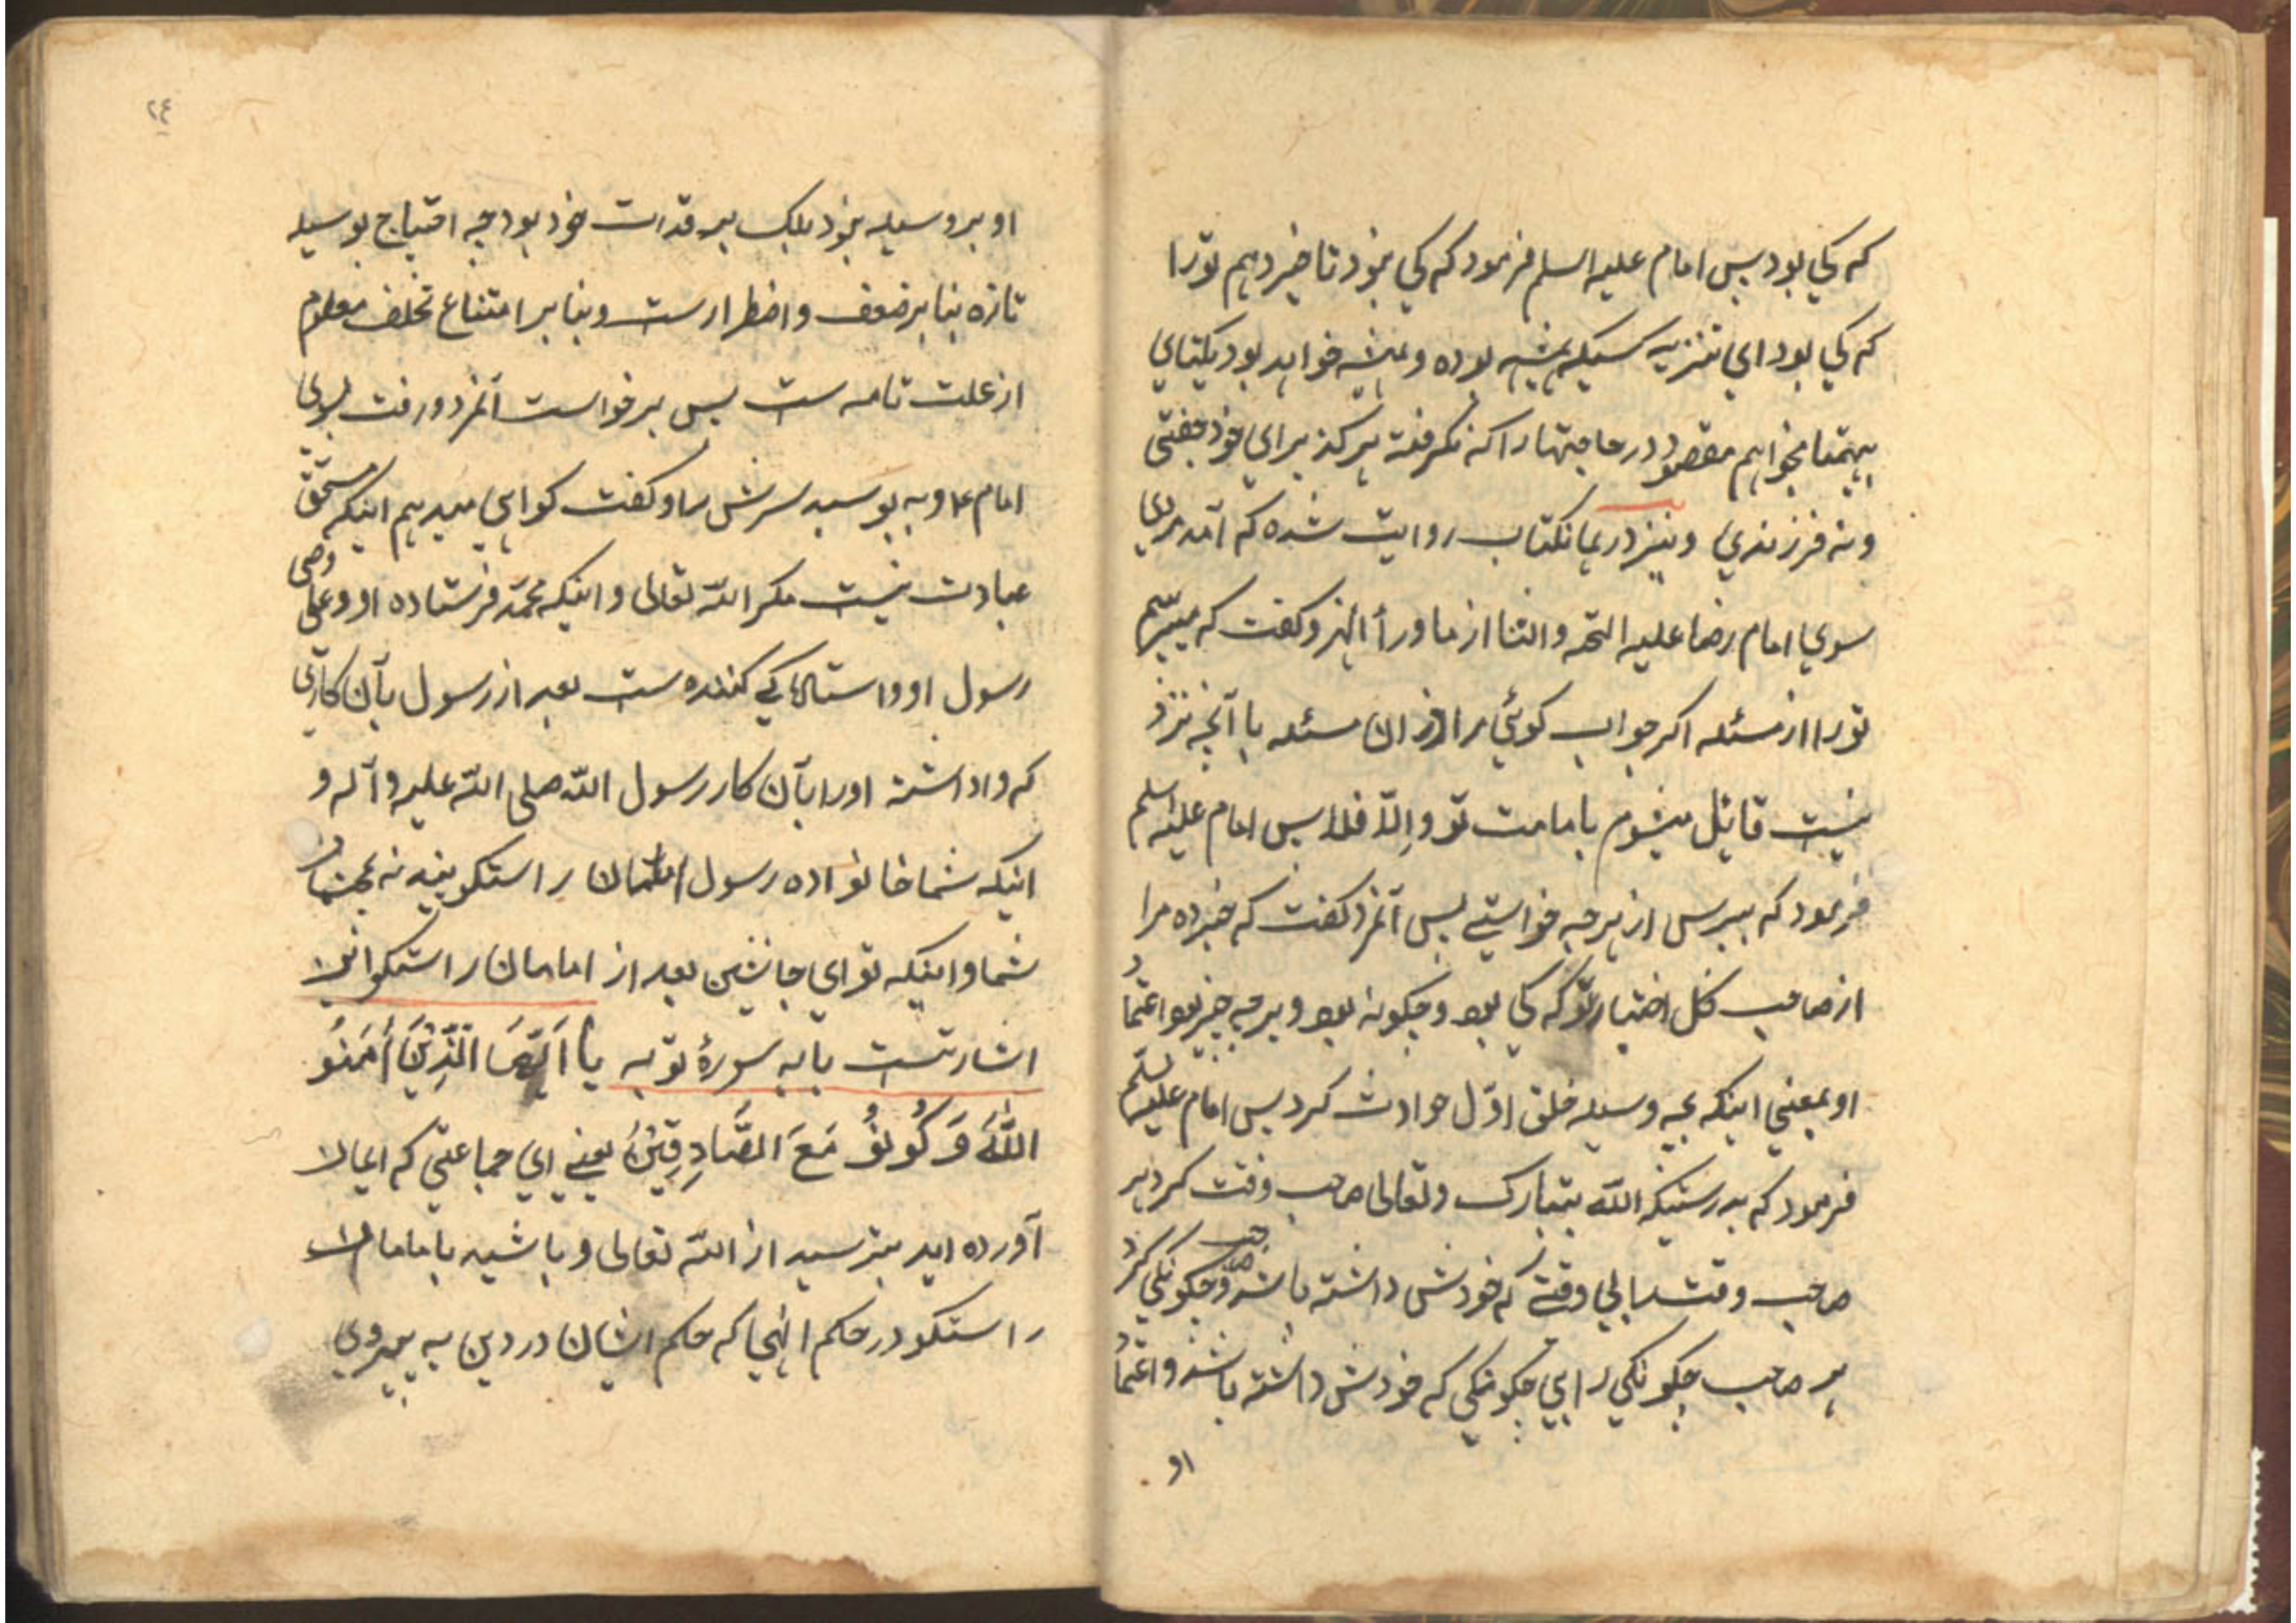 که کی بود پس امام علیه السلم فرمود که کی نبود تا خبر دهم تورا
که کی بود ای تنزیه کسیکه همیشه بوده و همیشه خواهد بود یکتای
بیهمتا میخواهم مقصود در حاجتها را که نگرفته هرگز برای خود جفتی
و نه فرزندی و نیز در همانکتاب روایت شده که آمد مردی
سوی امام رضا علیه التحه و الثنا از ماوراء النهر و گفت که میپرسم
تورا از مسئله اگر جواب گوئی مرا از ان مسئله با آنچه نزد
نیست قایل میشوم بامامت تو و الّا فلا پس امام علیه السلم
فرمود که بپرس از هر چه خواستی پس آنمرد گفت که خبر ده مرا
از صاحب کل اختیار تو که کی بود و چکونه بود و بر چه چیز بود اعتماد
او بمعنی اینکه بچه وسیله خلق اوّل حوادث کرد پس امام علیه السلم
فرمود که بدرستیکه اللّه تبارک و تعالی صاحب وقت کرد هر
صاحب وقت را بی وقتی که خودش داشته باشد و صاحب چکونکی کرد
هر صاحب چکونکی را بی چکونکی که خودش داشته باشد و اعتماد
او
٢٤
او بر وسیله نبود بلکه بر قدرت خود بود چه احتیاج بوسیله
تازه بنا بر ضعف و اضطرارست و بنا بر امتناع تخلف معلوم
از علت تامه ست پس برخواست آنمرد و رفت بسوی
امام ع و به بوسید سرش را و گفت کواهی میدهم اینکه مستحق
عبادت نیست مکر اللّه تعالی و اینکه محمّد فرستاده او و علی وصی
رسول او و ایستادگی کننده ست بعد از رسول بآن کاری
که واداشته اورا بآن کار رسول اللّه صلی اللّه علیه و آله و
اینکه شما خانواده رسول امامان راستکویید نه مخالفان
شما و اینکه تو ای جانشین بعد از امامان راستکو این
اشارتست بایه سورۀ توبه یا اَیّهَا الَّذِیْنَ أَمَنُو
اللّٰهَ وَ کُونُو مَعَ الصَّادِقِیْنَ یعنی ای جماعتی که ایمان
آورده اید بترسید از اللّه تعالی و باشید با امامان
راستکو در حکم الهی که حکم ایشان در دین به پیروی